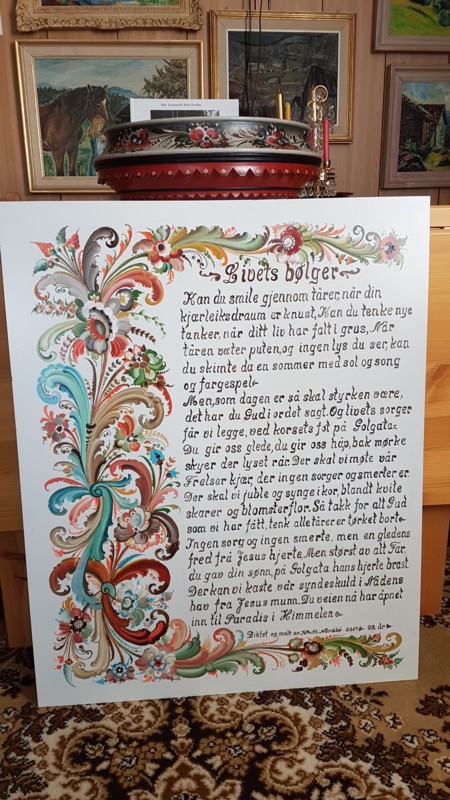 Livets bølger
Kan du smile gjennom tårer, når din
kjærleiksdraum er knust, Kan du tenke nye
tanker, når ditt liv har falt i grus, Når
tåren væter puten, og ingen lys du ser, kan
du skimte da en sommer med sol og song
og fargespel.
Men, som dagen er så skal styrken være,
det har du Gud i ordet sagt. Og livets sorger
får vi legge, ved korsets fot på Golgata.
Du gir oss glede, du gir oss håp, bak mørke
skyer der lyset rår. Der skal vi møte vår
Frelser kjær, der ingen sorger og smerter er.
Der skal vi juble og synge i kor, blandt kvite
skarer og blomsterflor. Så takk for alt Gud
som vi har fått, tenk alle tårer er tørket bort.
Ingen sorg og ingen smerte, men en gledens
fred frå Jesus hjerte. Men størst av alt Far,
du gav din sønn, på Golgata hans hjerte brast.
Der kan vi kaste vår syndeskuld i Nådens
hav fra Jesus munn. Du veien nå har åpnet
inn til Paradis i Himmelen.
Diktet og malt av 92 år